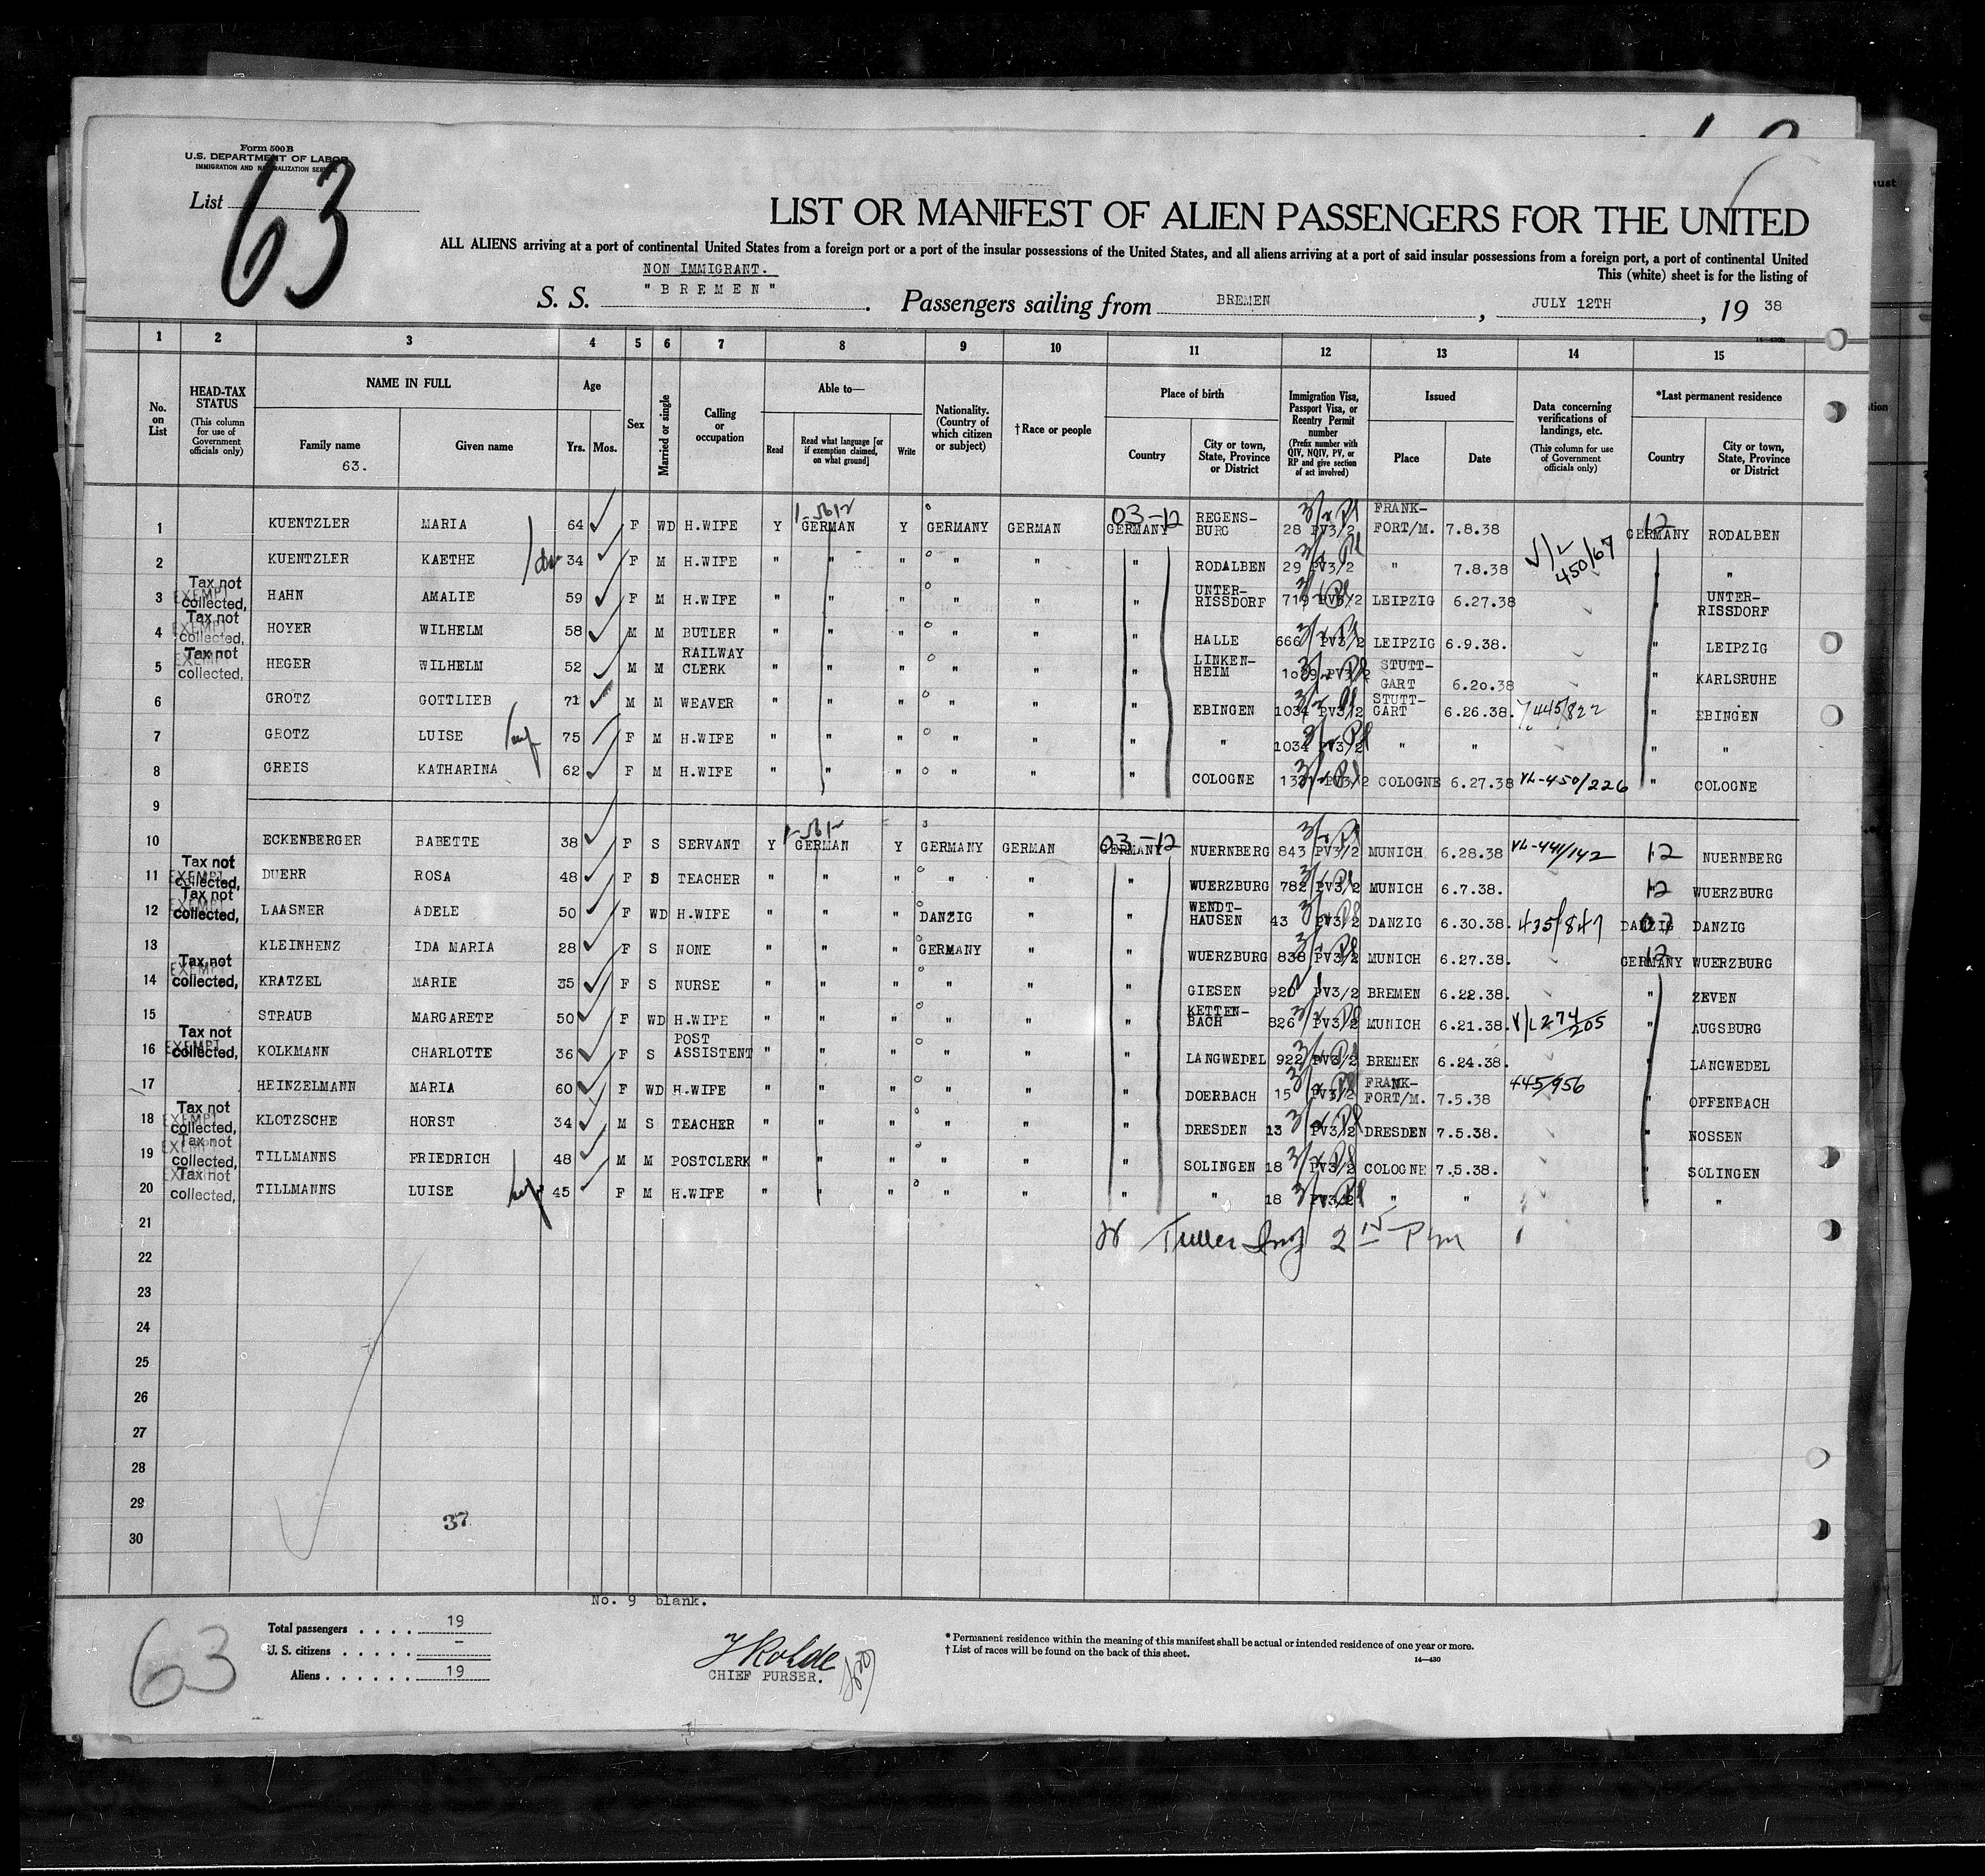 Form 500B
U.S. DEPARTMENT OF LABOR
IMMIGRATION AND NATURALIZATION SERVICE
List 63
LIST OR MANIFEST OF ALIEN PASSENGERS FOR THE UNITED
ALL ALIENS arriving at a port of continental United States from a foreign port or a port of the insular possessions of the United States, and all aliens arriving at a port of said insular possessions from a foreign port, a port of continental United
This (white) sheet is for the listing of
NON IMMIGRANT.
S. S. "BREMEN". Passengers sailing from BREMEN, JULY 12TH, 19 38
1 2 3 4 5 6 7 8 9 10 11 12 13 14 15
No. on List
HEAD-TAX STATUS (This column for use of Government officials only)
NAME IN FULL
Family name 63.
Given name
Age Yrs. Mos.
Sex
Married or single
Calling or occupation
Able to—
Read
Read what language [or if exemption claimed, on what ground]
Write
Nationality. (Country of which citizen or subject)
† Race or people
Place of birth
Country
City or town, State, Province or District
Immigration Visa, Passport Visa, or Reentry Permit number (Prefix number with QIV, NQIV, PV, or RP and give section of act involved)
Issued
Place Date
Data concerning verifications of landings, etc. (This column for use of Government officials only)
*Last permanent residence
Country
City or town, State, Province or District
1 KUENTZLER MARIA 64 F WD H.WIFE Y GERMAN Y GERMANY GERMAN GERMANY 03-12 REGENS-BURG 28 PV3/2 FRANK-FORT/M. 7.8.38 GERMANY 12 RODALBEN
2 KUENTZLER KAETHE 34 F M H.WIFE " " " " " " RODALBEN 29 PV3/2 " 7.8.38 450/67 "
3 Tax not collected, EXEMPT HAHN AMALIE 59 F M H.WIFE " " " " " " UNTER-RISSDORF 719 PV3/2 LEIPZIG 6.27.38 UNTER-RISSDORF
4 Tax not collected, EXEMPT HOYER WILHELM 58 M M BUTLER " " " " " " HALLE 666 PV3/2 LEIPZIG 6.9.38. " LEIPZIG
5 Tax not collected, EXEMPT HEGER WILHELM 52 M M RAILWAY CLERK " " " " " " LINKEN-HEIM PV3/2 STUTT-GART 6.20.38 " KARLSRUHE
6 GROTZ GOTTLIEB 71 M M WEAVER " " " " " " EBINGEN 1034 PV3/2 STUTT-GART 6.26.38. 445/822 " EBINGEN
7 GROTZ LUISE 75 F M H.WIFE " " " " " " " 1034 PV3/2 " " " "
8 GREIS KATHARINA 62 F M H.WIFE " " " " " " COLOGNE PV3/2 COLOGNE 6.27.38 VL-450/226 " COLOGNE
9
10 ECKENBERGER BABETTE 38 F S SERVANT Y GERMAN Y GERMANY GERMAN GERMANY 03-12 NUERNBERG 843 PV3/2 MUNICH 6.28.38 VL-441/142 12 NUERNBERG
11 Tax not collected, EXEMPT DUERR ROSA 48 F S TEACHER " " " " " " WUERZBURG 782 PV3/2 MUNICH 6.7.38. 12 WUERZBURG
12 Tax not collected, EXEMPT LAASNER ADELE 50 F WD H.WIFE " " " DANZIG " " WENDT-HAUSEN 43 PV3/2 DANZIG 6.30.38. 435/847 DANZIG DANZIG
13 KLEINHENZ IDA MARIA 28 F S NONE " " " GERMANY " " WUERZBURG 838 PV3/2 MUNICH 6.27.38. GERMANY 12 WUERZBURG
14 Tax not collected, EXEMPT KRATZEL MARIE 35 F S NURSE " " " " " " GIESEN 920 PV3/2 BREMEN 6.22.38. " ZEVEN
15 STRAUB MARGARETE 50 F WD H.WIFE " " " " " " KETTEN-BACH 826 PV3/2 MUNICH 6.21.38. 274/205 " AUGSBURG
16 Tax not collected, EXEMPT KOLKMANN CHARLOTTE 36 F S POST ASSISTENT " " " " " " LANGWEDEL 922 PV3/2 BREMEN 6.24.38. " LANGWEDEL
17 HEINZELMANN MARIA 60 F WD H.WIFE " " " " " " DOERBACH 15 PV3/2 FRANK-FORT/M. 7.5.38 445/956 " OFFENBACH
18 Tax not collected, EXEMPT KLOTZSCHE HORST 34 M S TEACHER " " " " " " DRESDEN 13 PV3/2 DRESDEN 7.5.38. " NOSSEN
19 Tax not collected, EXEMPT TILLMANNS FRIEDRICH 48 M M POSTCLERK " " " " " " SOLINGEN 18 PV3/2 COLOGNE 7.5.38. " SOLINGEN
20 Tax not collected, EXEMPT TILLMANNS LUISE 45 F M H.WIFE " " " " " " " 18 PV3/2 " " " "
21
22
23
24
25
26
27
28
29
37
30
No. 9 blank.
63
Total passengers . . . . 19
U. S. citizens . . . . . –
Aliens . . . . . . 19
CHIEF PURSER.
* Permanent residence within the meaning of this manifest shall be actual or intended residence of one year or more.
† List of races will be found on the back of this sheet.
14—430